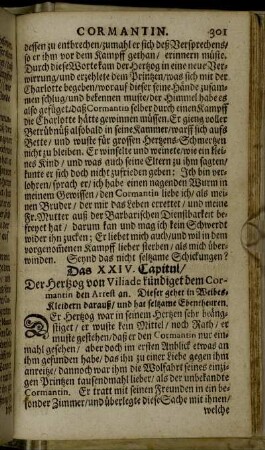 CORMANTIN. 301
dessen zu entbrechen/zumahl er sich des Versprechens/
so er ihm vor dem Kampff gethan/ erinnern müste.
Durch diese Worte kam der Hertzog in eine neue Ver-
wirrung/und erzehlete dem Printzen/was sich mit der
Charlotte begeben/worauf dieser seine Hände zusam-
men schlug/und bekennen muste/der Himmel habe es
also gefüget/daß Cormantin selber durch einen Kampff
die Charlotte hätte gewinnen müssen. Er gieng voller
Betrübnüß alsobald in seine Kammer/warff sich aufs
Bette/ und wuste für grossen Hertzens-Schmertzen
nicht zu bleiben. Er winselte und weinete/wie ein klei-
nes Kind/ und was auch seine Eltern zu ihm sagten/
kunte er sich doch nicht zufrieden geben: Ich bin ver-
lohren/sprach er/ ich habe einen nagenden Wurm in
meinem Gewissen/ den Cormantin liebe ich/als mei-
nen Bruder/ der mir das Leben errettet / und meine
Fr. Mutter auß der Barbarischen Dienstbarkeit be-
freyet hat/ darum kan und mag ich kein Schwerdt
wider ihn zucken; Er liebet mich auch/und wil in dem
vorgenom̃enen Kampff lieber sterben/ als mich über-
winden. Seynd das nicht seltzame Schickungen?
Das XXIV. Capitul/
Der Hertzog von Viliade kündiget dem Cor-
mantin den Arrest an. Dieser gehet in Weibes-
Kleidern darauß/ und hat seltzame Ebentheuren.
Der Hertzog war in seinem Hertzen sehr beäng-
stiget/ er wuste kein Mittel/ noch Rath/ er
muste gestehen/daß er den Cormantin nur ein-
mahl gesehen/ aber doch im ersten Anblick etwas an
ihm gefunden habe/ das ihn zu einer Liebe gegen ihm
anreitze/dannoch war ihm die Wolfahrt seines eintzi-
gen Printzen tausendmahl lieber/ als der unbekandte
Cormantin. Er tratt mit seinen Freunden in ein be-
sonder Zimmer/und überlegte diese Sache mit ihnen/
welche